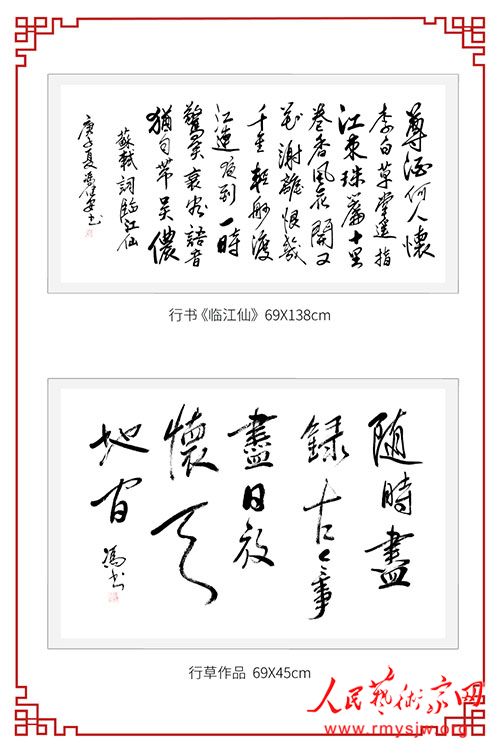 尊酒何人懷
李白草堂遥指
江東珠簾十里
卷香風花開又
花謝離恨幾
千重輕舸渡
江連夜到一時
驚笑衰容語音
猶自帶吳儂
蘇軾詞臨江仙
庚子夏
書
行书《临江仙》69X138cm
随時盡
録古今事
盡日放
懷天
地間
馮書
行草作品 69X45cm
人民藝術家网
www.rmysjw.org